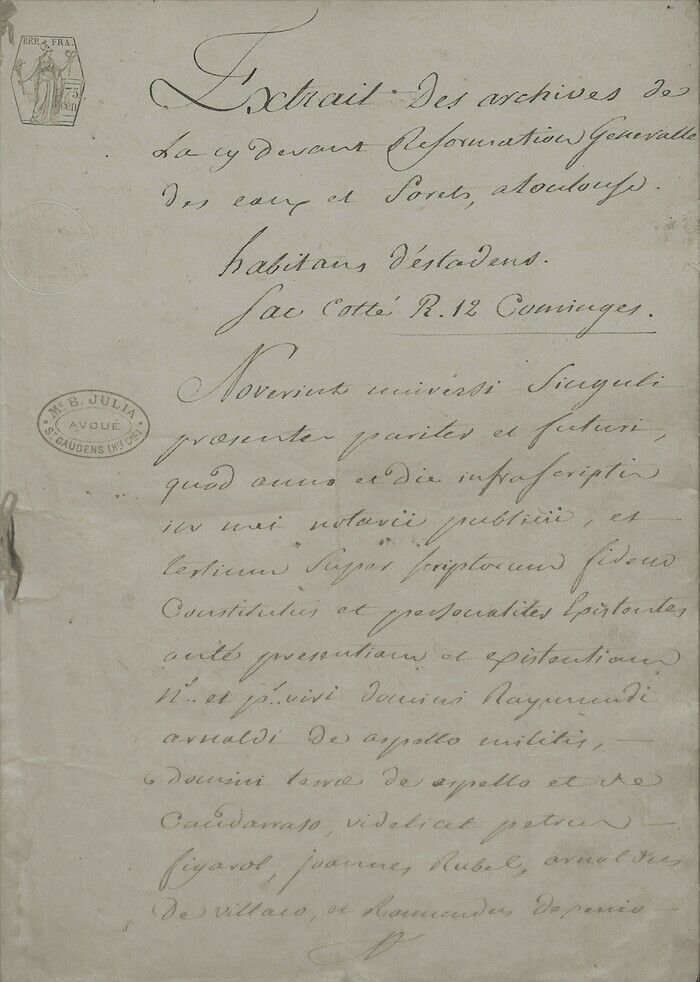 REP. FRA.
75
cen
Extrait des archives de
La cy devant Reformation Generalle
des eaux et forets, atoulouse.
habitans d'éstadens.
Sac Cotté R. 12 Cominges.
Mᵉ B. JULIA
AVOUÉ
Sᵗ GAUDENS (Hᵗᵉ Gᵃʳ)
Noverint universi Singuli
præsenter pariter et futuri,
quòd anno et die infrascriptis
in mei notarii publicii, et
testium Supra scriptorum fidem
Constitutus et personalites Existentes
anté presentiam et existentiam
N.. et p.. viri domini Raymundi
arnaldi de aspello militis,
domini terræ de aspello et de
videlicet petrus
figarol, joannes Rubel, arnaldus
de villaro, et Ramundus